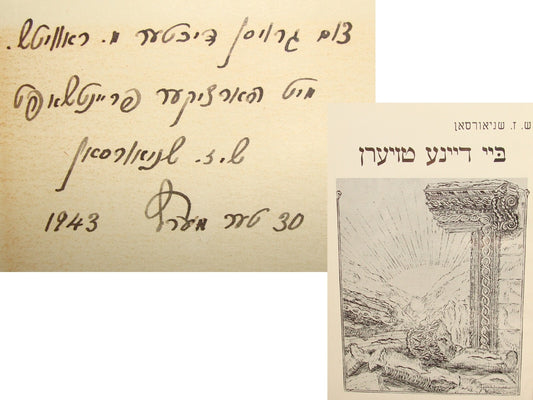 צום גרויסן דיכטער מ. ראוויטש.
מיט הארציקער פריינטשאפט
ש. ז. שניאורסאן
30טער מערץ 1943
ש. ז. שניאורסאן
ביי דיינע טויערן